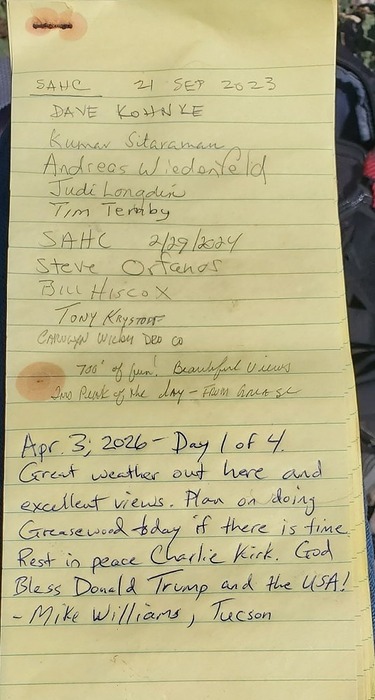 SAHC 21 SEP 2023
DAVE KOHNKE
Kumar Sitaraman
Andreas Wiedenfeld
Judi Longdin
Tim Ternby
SAHC 2/29/2024
Steve Orfanos
Bill Hiscox
TONY KRYSTOFF
700' of fun! Beautiful views
2nd Peak of the day - FROM GREASE
Apr. 3, 2026 - Day 1 of 4.
Great weather out here and
excellent views. Plan on doing
Greasewood today if there is time.
Rest in peace Charlie Kirk. God
Bless Donald Trump and the USA!
- Mike Williams, Tucson